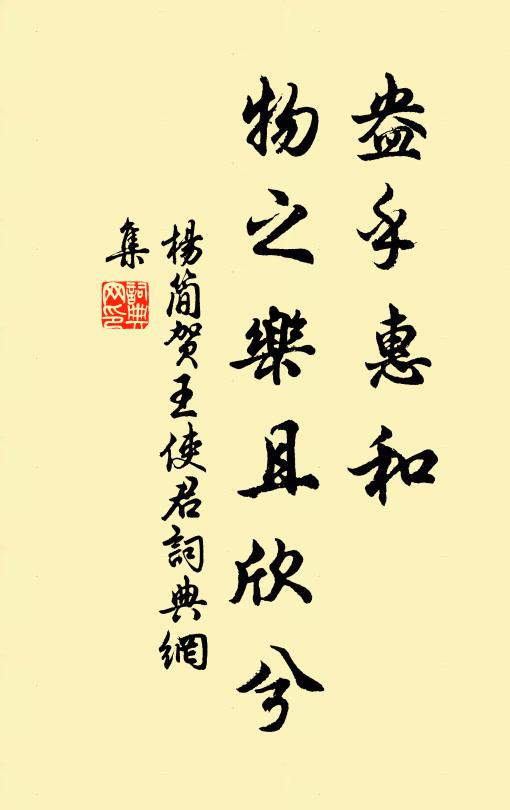 盎乎惠和
物之樂且欣兮
楊簡賀王使君詞典網
集
詞典网印